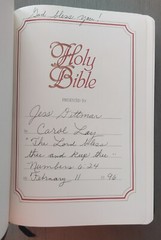 God bless you!
Holy
Bible
PRESENTED TO
Jess Gittmar
BY Carol Lay
"The Lord bless
thee and keep thee -
Numbers 6:24
ON February 11 1996